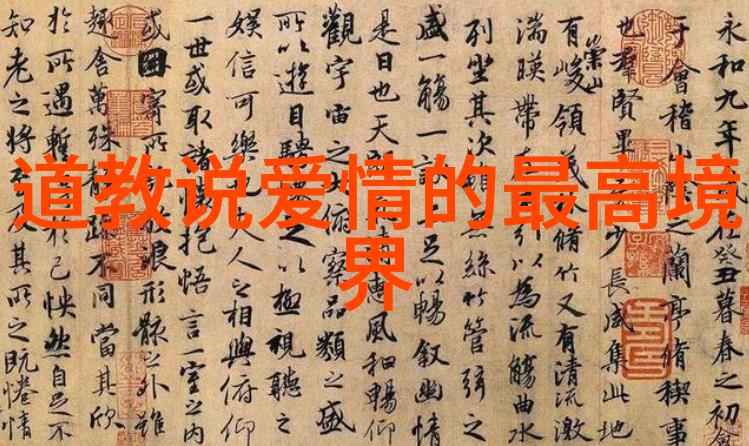 道教说爱情的最高境
界
永和九年在癸丑暮春之初會
于會稽山之蘭亭脩稧事
也羣賢畢少長咸集此地
有崇山峻領茂脩竹又有清流激
湍暎帶引以為流觴曲水
列坐其次雖無絲竹管弦之
盛一觴一詠足以暢敘幽情
是日也天朗清惠風和暢仰
觀宇宙之大俯察品類之盛
所以遊目騁懷之以極視聽之
娛信可樂也人之相與俯仰
一世或取諸懷抱悟言一室之內
或因寄所浪形骸之外雖
趣舍萬殊靜躁不同當其欣
於所遇暫於己怏然自足不
知老之將至其所之既惓情